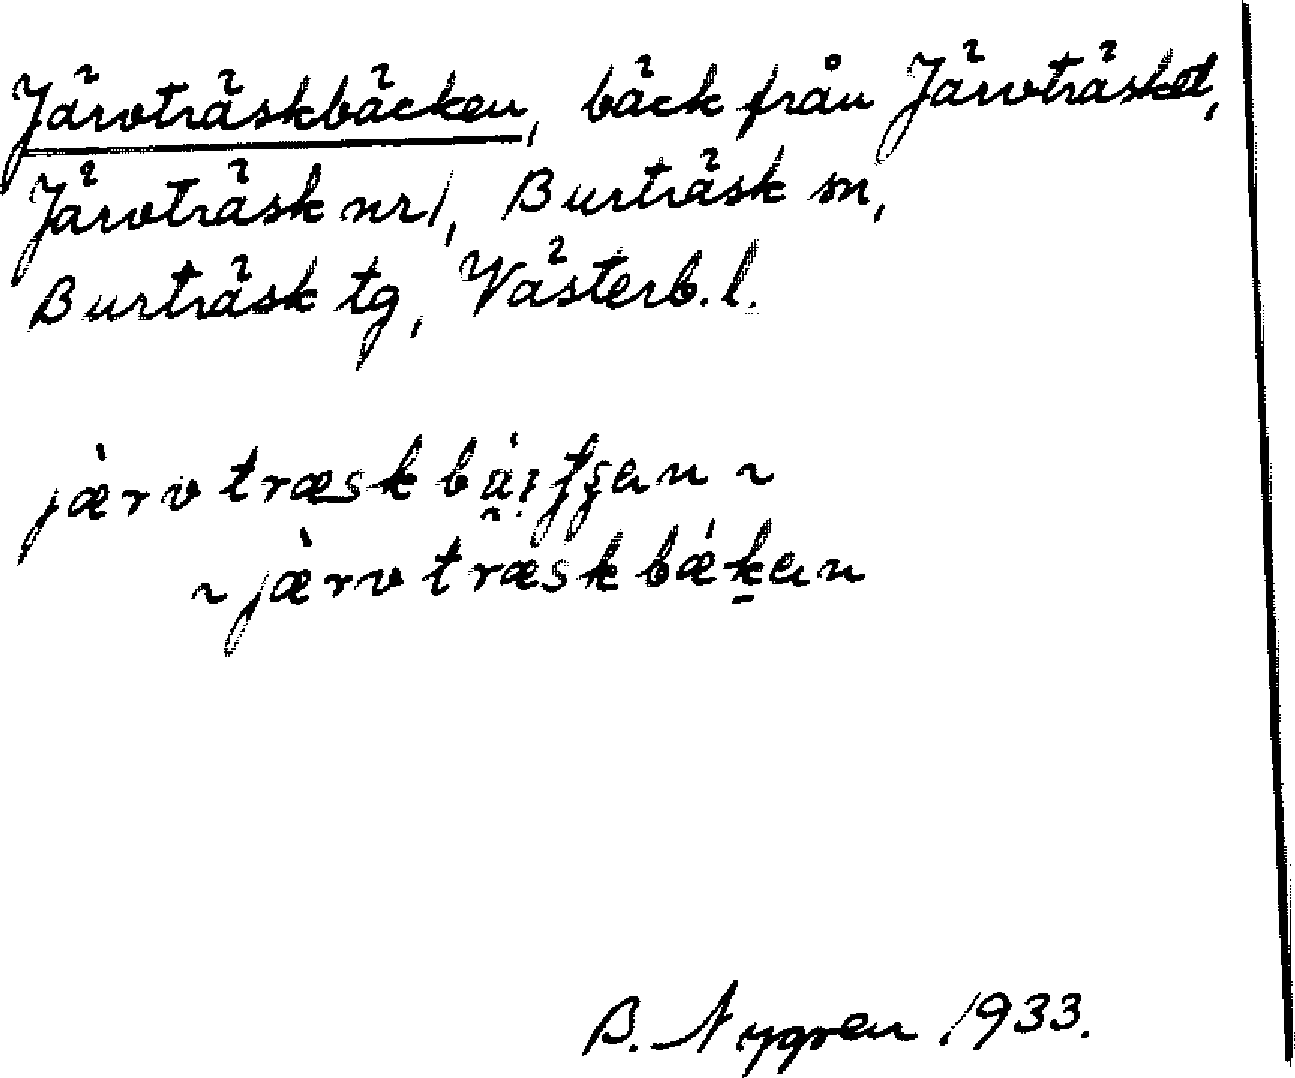 Järvträskbäcken, bäck från Järvträsket,
Järvträsk nr 1, Burträsk sn,
Burträsk tg, Västerb. l.
~ jæ̀rvtræskbǽkan
B. Nygren 1933.